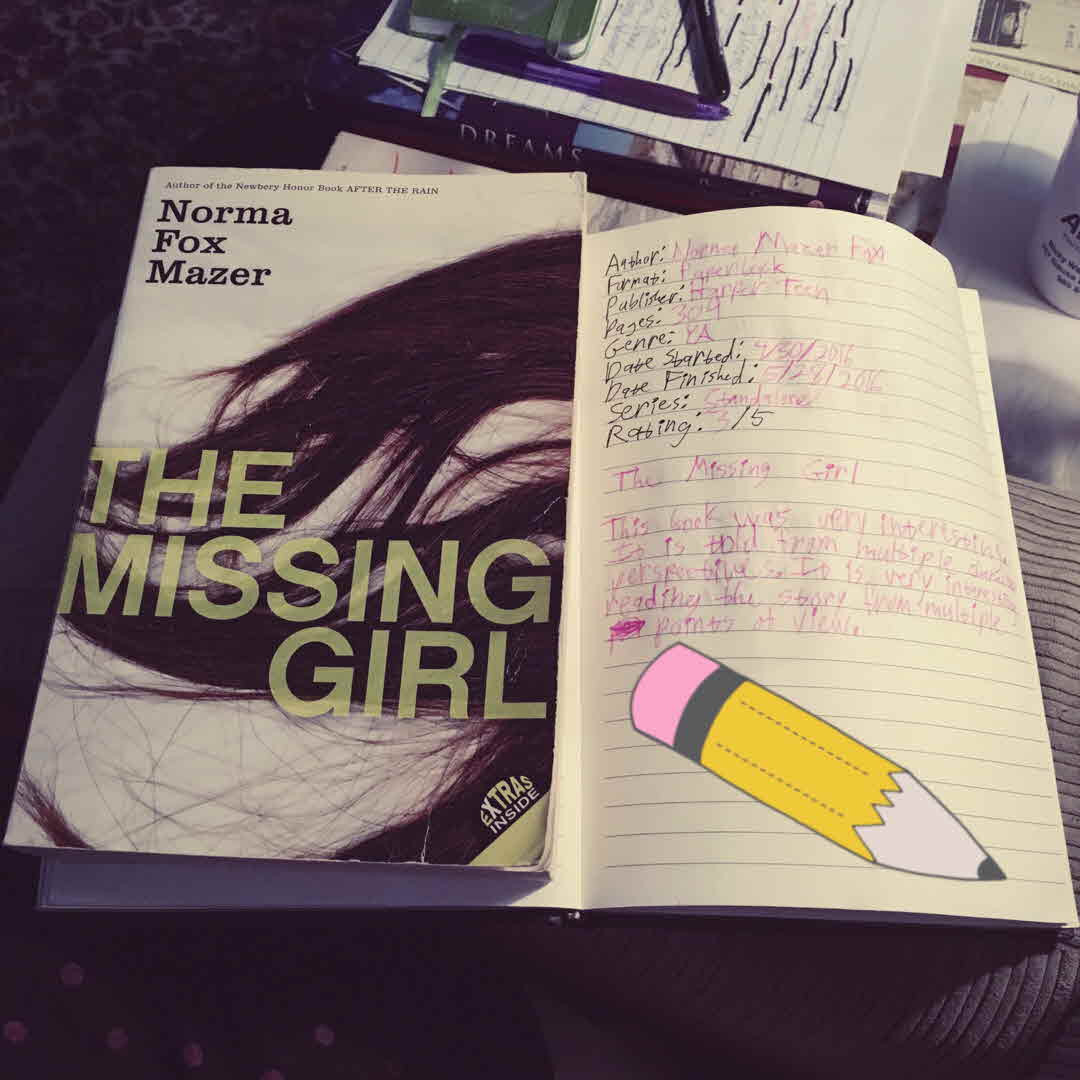 DREAMS
Author of the Newbery Honor Book AFTER THE RAIN
Norma
Fox
Mazer
THE
MISSING
GIRL
EXTRAS
INSIDE
Author: Norma Mazer Fox
Format: Paperback
Publisher: Harper Teen
Pages: 304
Genre: YA
Date Started: 4/30/2016
Date Finished: 5/28/2016
Series: Standalone
Rating: 3/5
The Missing Girl
This book was very interesting.
It is told from multiple
perspectives. It is very interesting
reading the story from multiple
points of view.